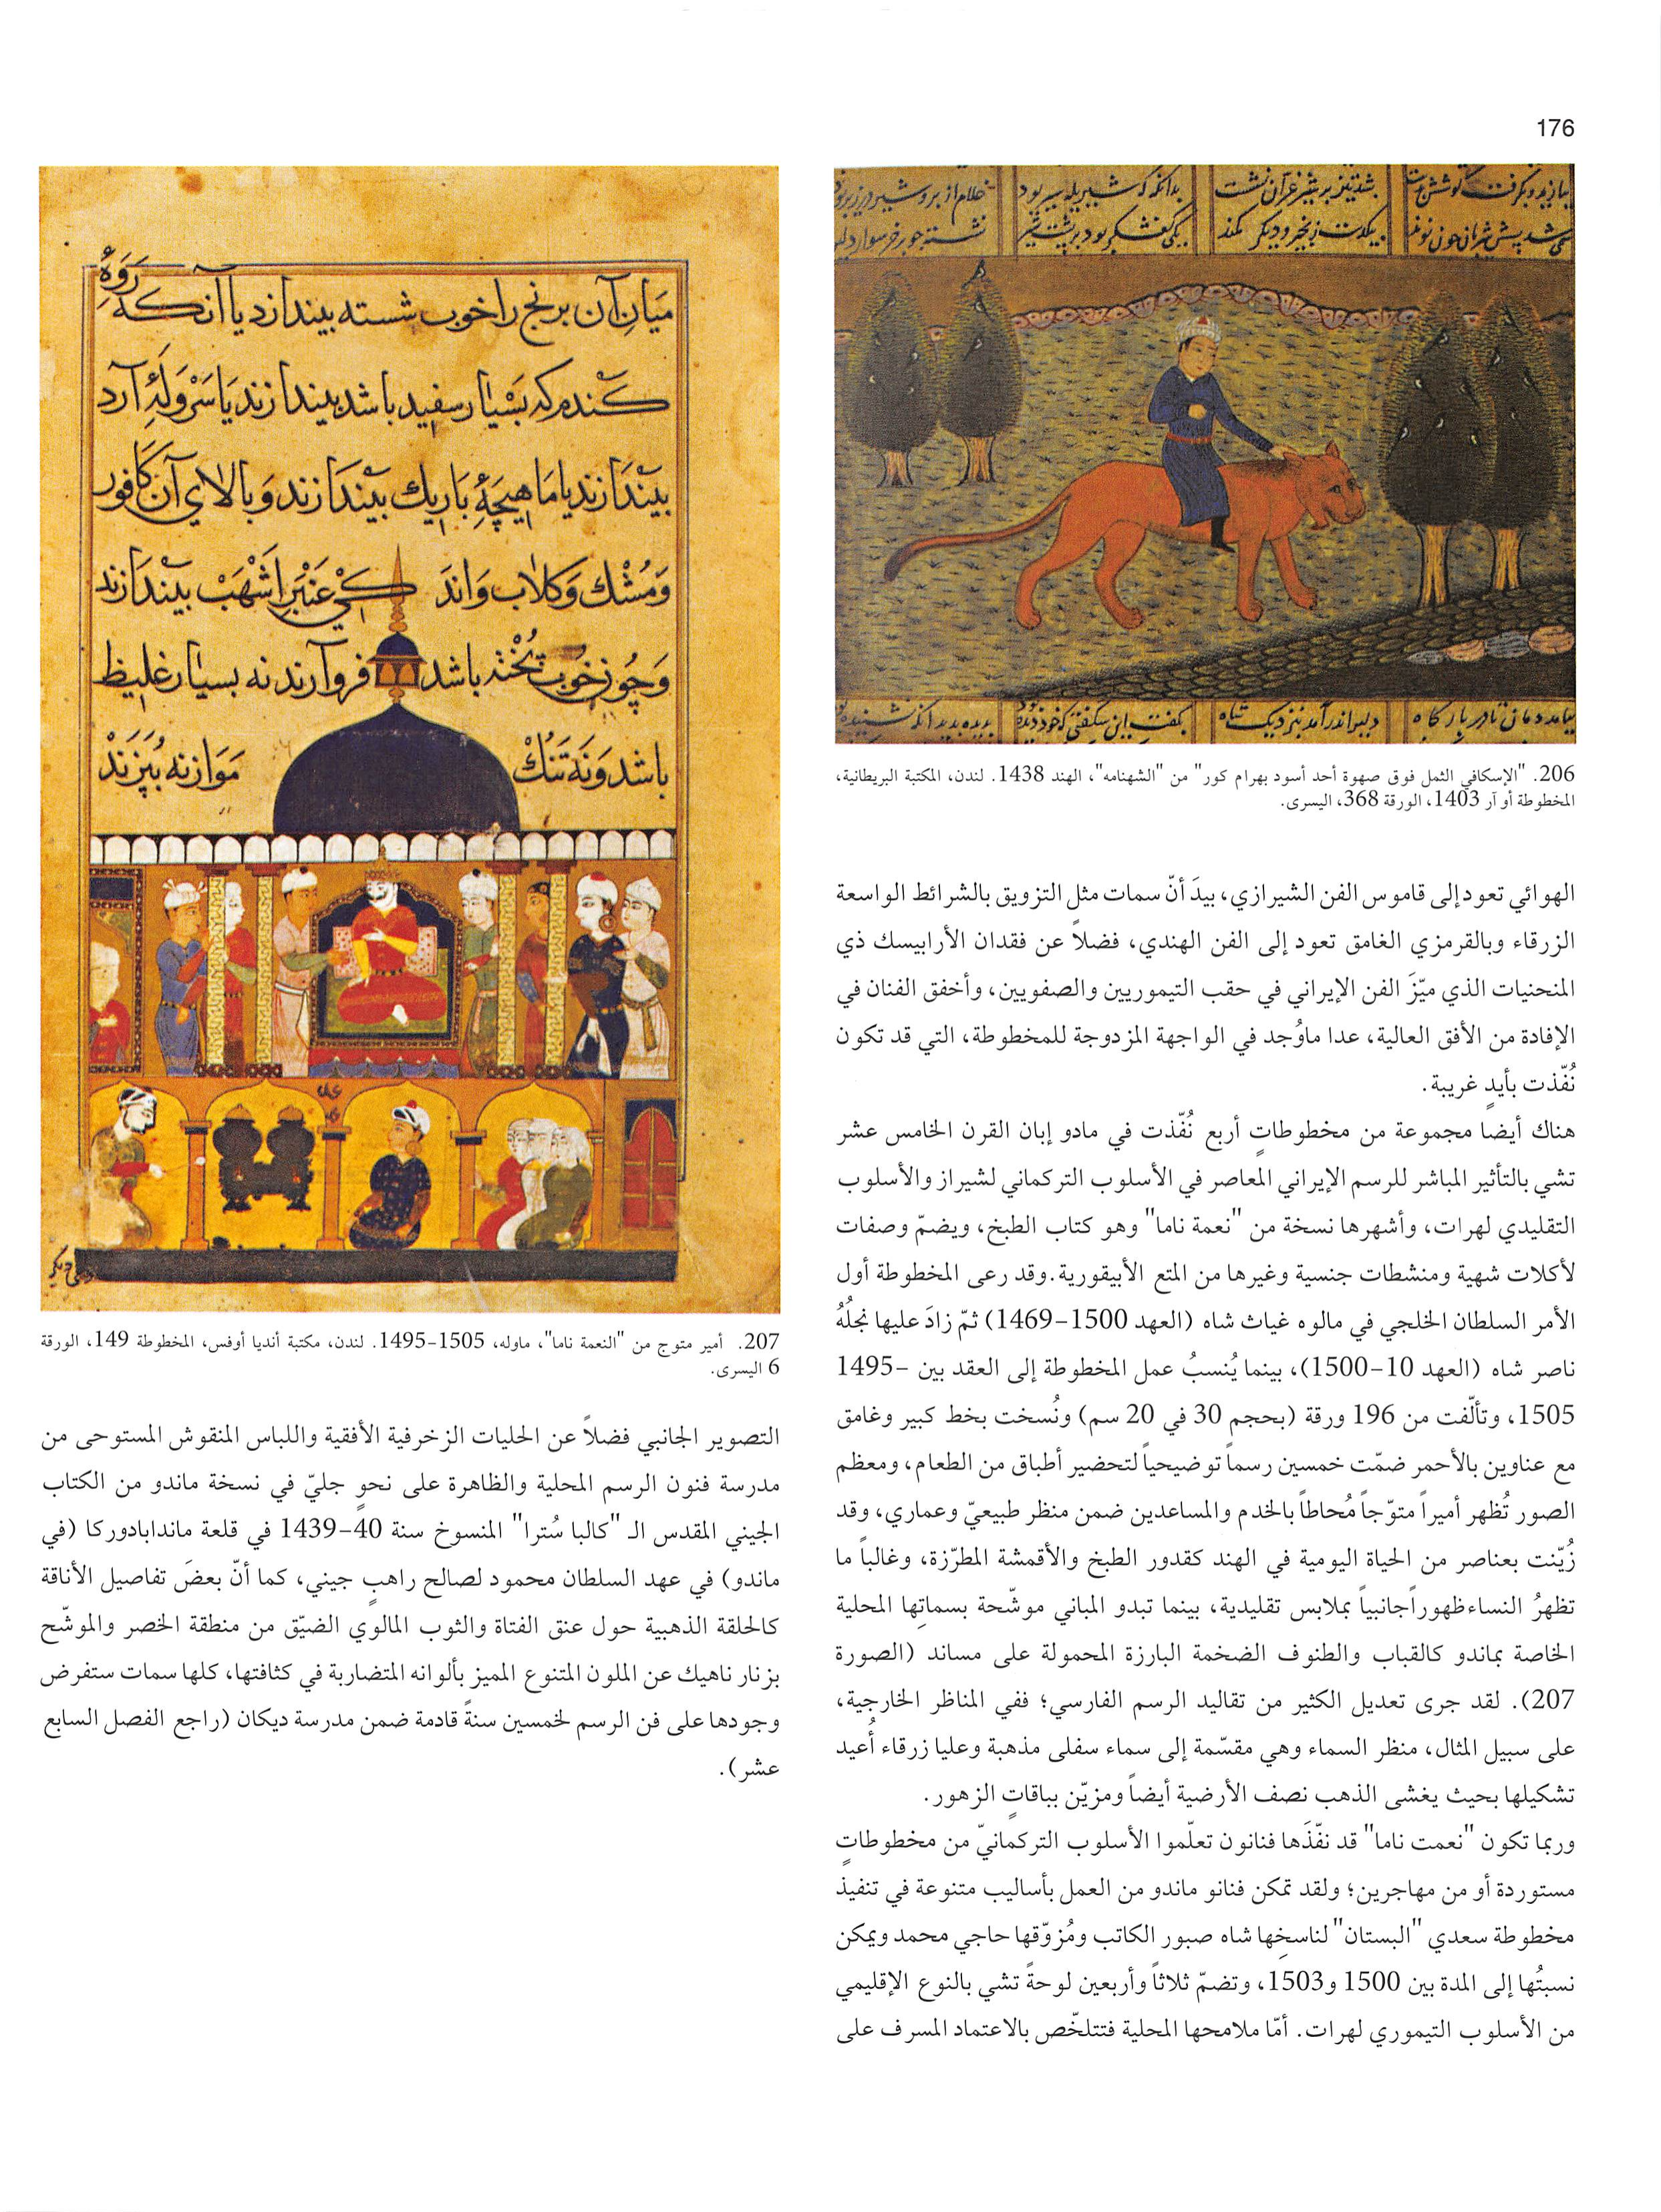 176
206. "الإسكافي الثمل فوق صهوة أحد أسود بهرام كور" من "الشهنامه"، الهند 1438. لندن، المكتبة البريطانية،
المخطوطة أو آر 1403، الورقة 368، اليسرى.
الهوائي تعود إلى قاموس الفن الشيرازي، بيدَ أنّ سمات مثل التزويق بالشرائط الواسعة
الزرقاء وبالقرمزي الغامق تعود إلى الفن الهندي، فضلاً عن فقدان الأرابيسك ذي
المنحنيات الذي ميّزَ الفن الإيراني في حقب التيموريين والصفويين، وأخفق الفنان في
الإفادة من الأفق العالية، عدا ماوُجد في الواجهة المزدوجة للمخطوطة، التي قد تكون
نُفّذت بأيدٍ غريبة.
هناك أيضا مجموعة من مخطوطاتٍ أربع نُفّذت في مادو إبان القرن الخامس عشر
تشي بالتأثير المباشر للرسم الإيراني المعاصر في الأسلوب التركماني لشيراز والأسلوب
التقليدي لهرات، وأشهرها نسخة من "نعمة ناما" وهو كتاب الطبخ، ويضمّ وصفات
لأكلات شهية ومنشطات جنسية وغيرها من المتع الأبيقورية.وقد رعى المخطوطة أول
الأمر السلطان الخلجي في مالوه غياث شاه (العهد 1500-1469) ثمّ زادَ عليها نجلُهُ
ناصر شاه (العهد 10-1500)، بينما يُنسبُ عمل المخطوطة إلى العقد بين 1495-
1505، وتألّفت من 196 ورقة (بحجم 30 في 20 سم) ونُسخت بخط كبير وغامق
مع عناوين بالأحمر ضمّت خمسين رسماً توضيحياً لتحضير أطباق من الطعام، ومعظم
الصور تُظهر أميراً متوّجاً مُحاطاً بالخدم والمساعدين ضمن منظر طبيعيّ وعماري، وقد
زُيّنت بعناصر من الحياة اليومية في الهند كقدور الطبخ والأقمشة المطرّزة، وغالباً ما
تظهرُ النساءظهوراًجانبياً بملابس تقليدية، بينما تبدو المباني موشّحة بسماتِها المحلية
الخاصة بماندو كالقباب والطنوف الضخمة البارزة المحمولة على مساند (الصورة
207). لقد جرى تعديل الكثير من تقاليد الرسم الفارسي؛ ففي المناظر الخارجية،
على سبيل المثال، منظر السماء وهي مقسّمة إلى سماء سفلى مذهبة وعليا زرقاء أُعيد
تشكيلها بحيث يغشى الذهب نصف الأرضية أيضاً ومزيّن بباقاتٍ الزهور.
وربما تكون "نعمت ناما" قد نفّذَها فنانون تعلّموا الأسلوب التركمانيّ من مخطوطاتٍ
مستوردة أو من مهاجرين؛ ولقد تمكن فنانو ماندو من العمل بأساليب متنوعة في تنفيذ
مخطوطة سعدي "البستان" لناسخِها شاه صبور الكاتب ومُزوّقها حاجي محمد ويمكن
نسبتُها إلى المدة بين 1500 و1503، وتضمّ ثلاثاً وأربعين لوحةً تشي بالنوع الإقليمي
من الأسلوب التيموري لهرات. أمّا ملامحها المحلية فتتلخّص بالاعتماد المسرف على
میان آن برنج را خوب شسته بیندازد یا آنکه
کندم که بسیار سفید باشد بیندازند یا آرد
بیندازند یا ماهیچهٔ باریك بیندازند و بالای آن کافور
ومشك وکلاب واندکی عنبر اشهب بیندازند
وچون خوب پخته باشد فروآرند نه بسیار غلیظ
باشد ونه تنك موازنه بپزند
207. أمير متوج من "النعمة ناما"، ماوله، 1505-1495. لندن، مكتبة أنديا أوفس، المخطوطة 149، الورقة
6 اليسرى.
التصوير الجانبي فضلاً عن الحليات الزخرفية الأفقية واللباس المنقوش المستوحى من
مدرسة فنون الرسم المحلية والظاهرة على نحوٍ جليّ في نسخة ماندو من الكتاب
الجيني المقدس الـ "كالبا سُترا" المنسوخ سنة 40-1439 في قلعة ماندابادوركا (في
ماندو) في عهد السلطان محمود لصالح راهبٍ جيني، كما أنّ بعضَ تفاصيل الأناقة
كالحلقة الذهبية حول عنق الفتاة والثوب المالوي الضيّق من منطقة الخصر والموشّح
بزنار ناهيك عن الملون المتنوع المميز بألوانه المتضاربة في كثافتها، كلها سمات ستفرض
وجودها على فن الرسم لخمسين سنةً قادمة ضمن مدرسة ديكان (راجع الفصل السابع
عشر).